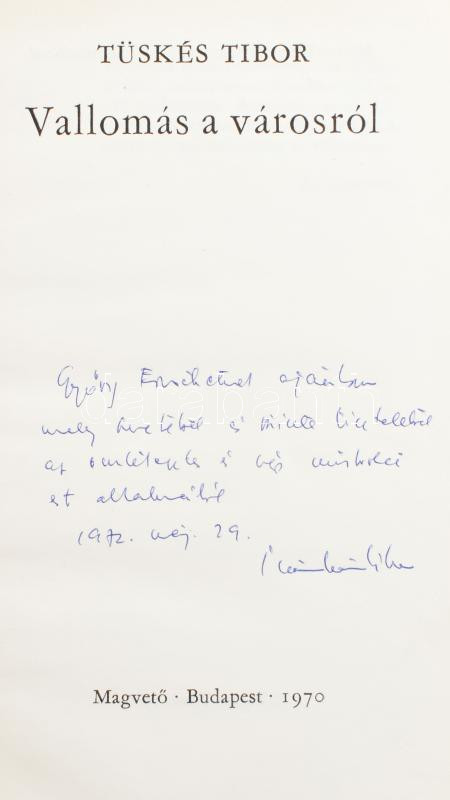 TÜSKÉS TIBOR
Vallomás a városról
György Erzsébetnek ajánlom
mely és tisztelettel
az és szép miskolci
est alkalmából
1972. máj. 29.
Magvető · Budapest · 1970